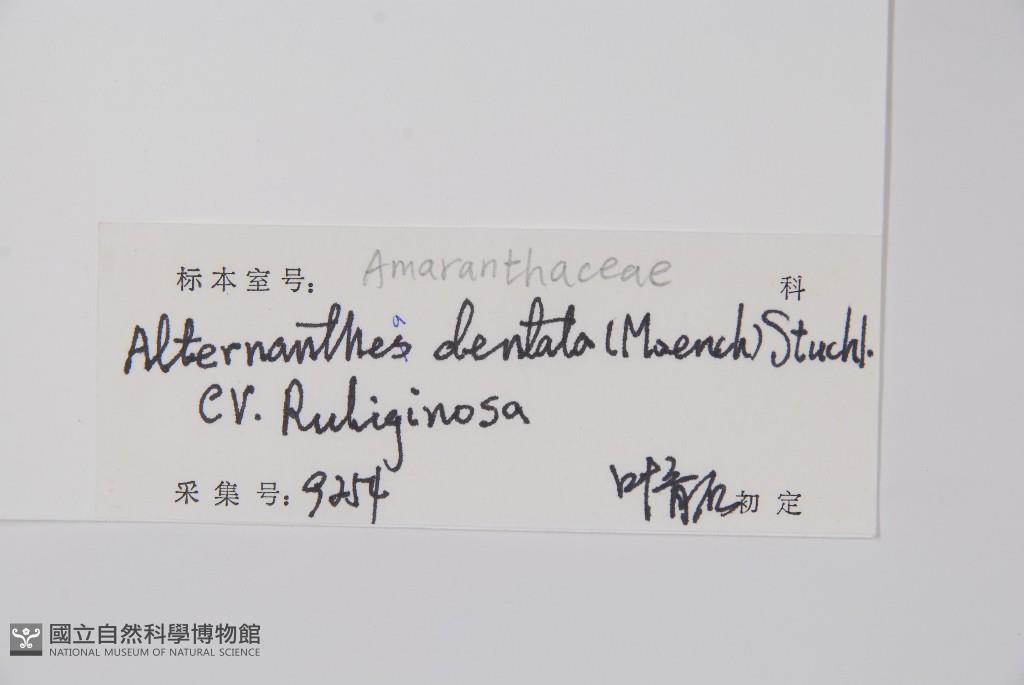 标本室号： Amaranthaceae 科
Alternanthera dentata (Moench) Stuchl.
CV. Rubiginosa
采集号： 9254 叶育石 初定
國立自然科學博物館
NATIONAL MUSEUM OF NATURAL SCIENCE